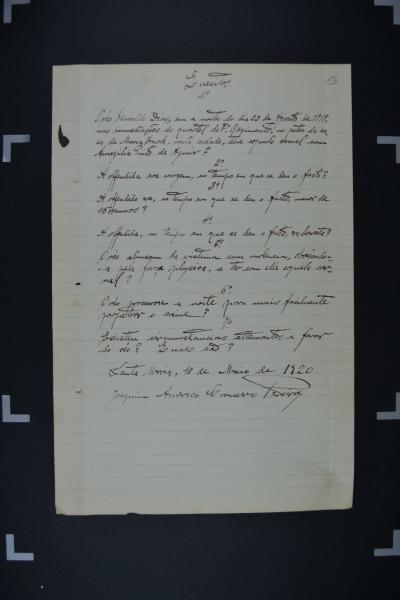 Quesitos
1º
O réo Oswaldo Dias, em a noite do dia 23 de Agosto de 1918,
nas immediações do quartel do 7º Regimento, no pateo da ca-
sa de Moura, nesta cidade, teve copula carnal com
Amazilia Pinto de Aguiar?
2º
A offendida era virgem, no tempo em que se deu o facto?
3º
A offendida era, no tempo em que se deu o facto, menor de
16 annos?
4º
A offendida, no tempo em que se deu o facto, era honesta?
5º
O réo abusou da mesma com violencia, obrigando-
-a pela força physica, a ter com elle copula car-
nal?
6º
O réo procurou a noite para mais facilmente
perpetrar o crime?
7º
Existem circumstancias attenuantes a favor
do réo? Quaes são?
Santa Maria, 10 de Maio de 1920
Joaquim Americo Pereira